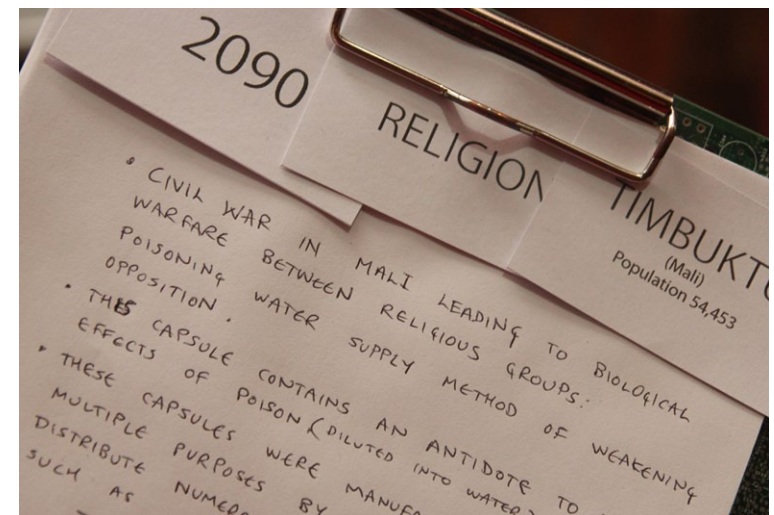 2090
RELIGION
TIMBUKTU
(Mali)
Population 54,453
• CIVIL WAR IN MALI LEADING TO BIOLOGICAL
WARFARE BETWEEN RELIGIOUS GROUPS:
POISONING WATER SUPPLY METHOD OF WEAKENING
OPPOSITION.
• THE CAPSULE CONTAINS AN ANTIDOTE TO
EFFECTS OF POISON (DILUTED INTO WATER)
• THESE CAPSULES WERE
MULTIPLE PURPOSES BY
DISTRIBUTE
SUCH AS